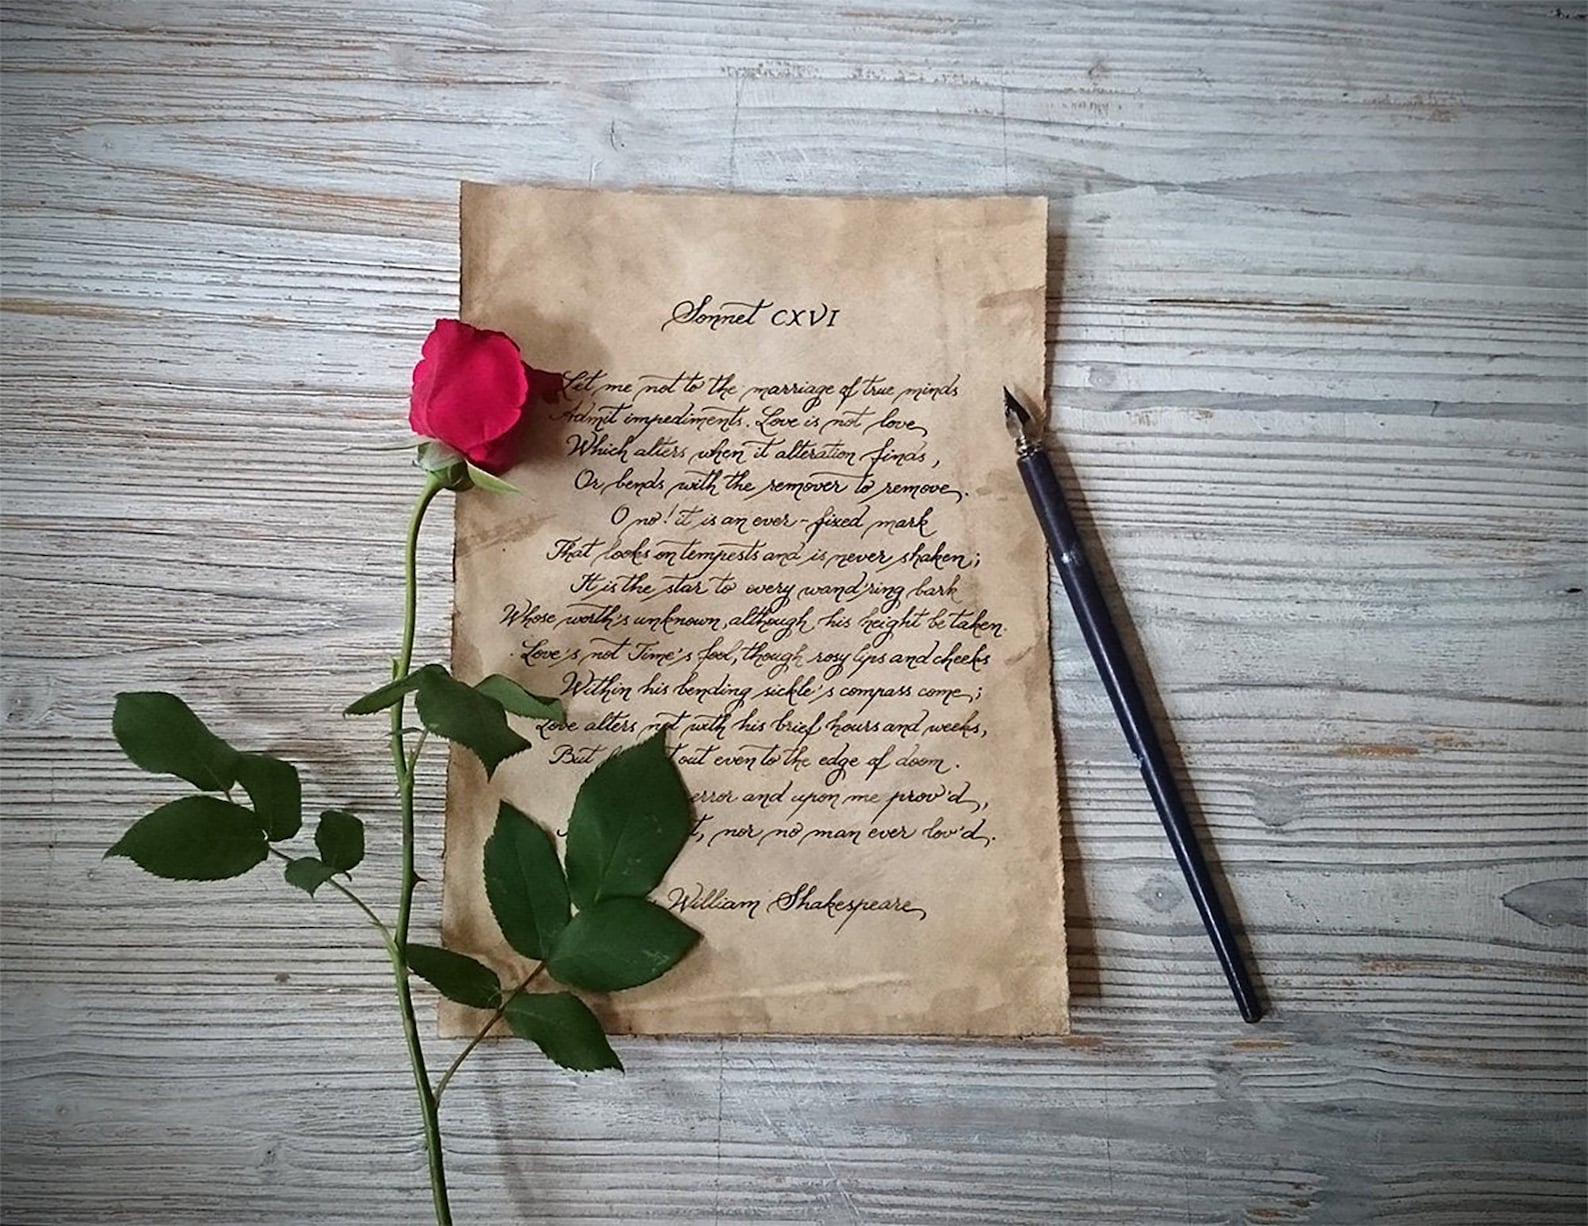 Sonnet CXVI
Let me not to the marriage of true minds
Admit impediments. Love is not love
Which alters when it alteration finds,
Or bends with the remover to remove.
O no! it is an ever-fixed mark
That looks on tempests and is never shaken;
It is the star to every wand'ring bark
Whose worth's unknown, although his height be taken.
Love's not Time's fool, though rosy lips and cheeks
Within his bending sickle's compass come;
Love alters not with his brief hours and weeks,
But out even to the edge of doom.
error and upon me prov'd,
nor no man ever lov'd.
William Shakespeare